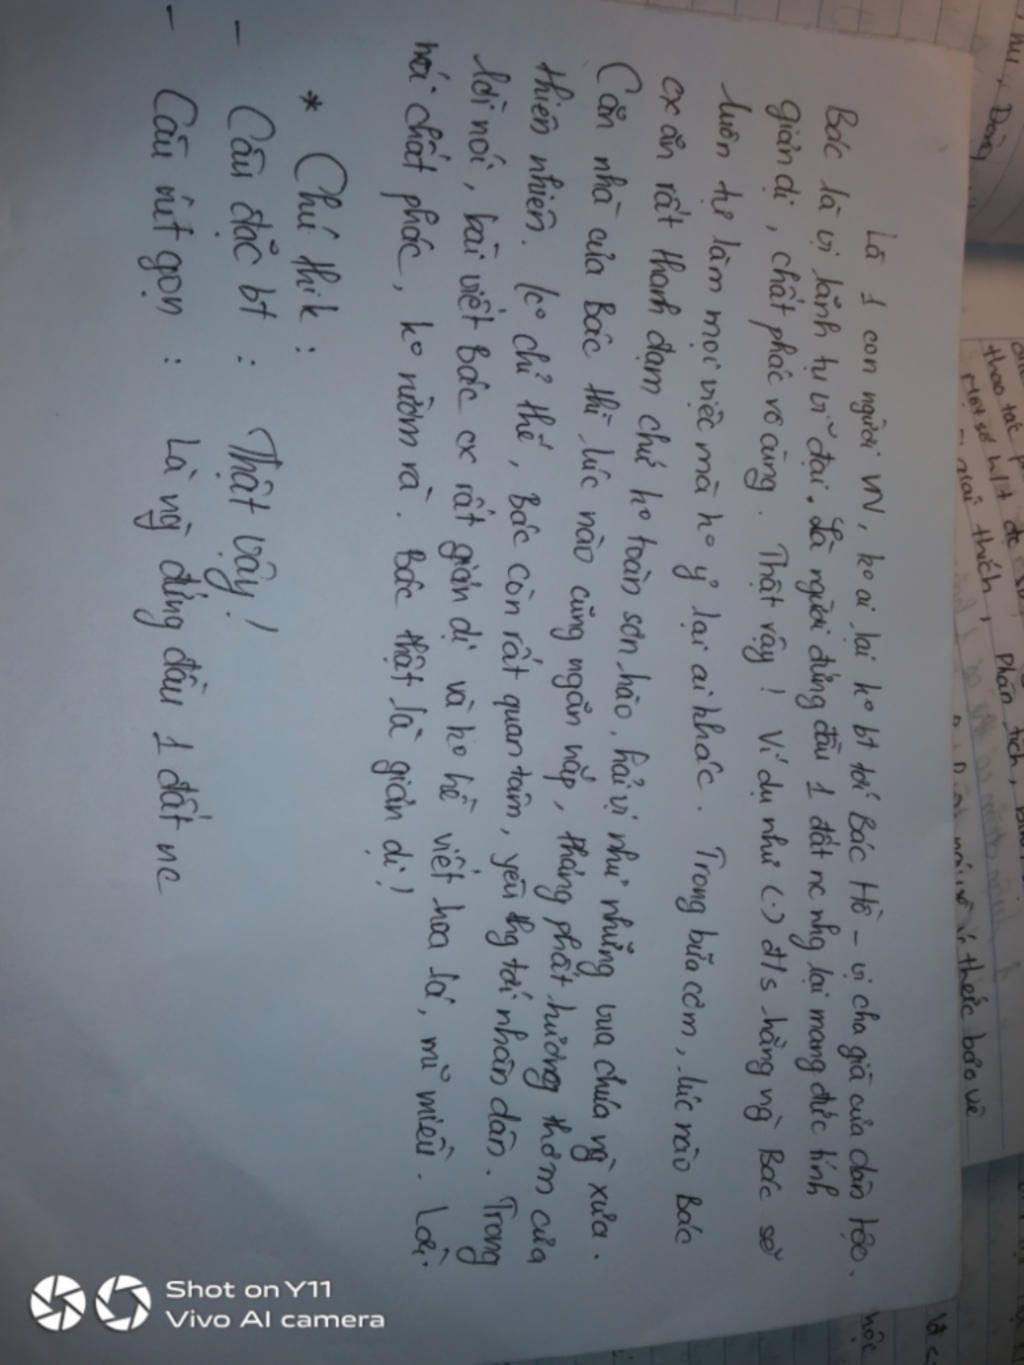 Là 1 con người VN, ko ai lại ko bt tới Bác Hồ - vị cha già của dân tộc.
Bác là vị lãnh tụ vĩ đại. Là người đứng đầu 1 đất nc nhg lại mang đức tính
giản dị, chất phác vô cùng. Thật vậy! Ví dụ như (.) đ/s hằng ng̀ Bác sẽ
luôn tự làm mọi việc mà ko ỷ lại ai khác. Trong bữa cơm, lúc nào Bác
cx ăn rất thanh đạm chứ ko toàn sơn hào, hải vị như những vua chúa ng̀ xưa.
Căn nhà của Bác thì lúc nào cũng ngăn nắp, thảng phất hương thơm của
thiên nhiên. Ko chỉ thế, Bác còn rất quan tâm, yêu thg tới nhân dân. Trong
lời nói, bài viết Bác cx rất giản dị và ko hề viết hoa lá, mĩ miều. Lời
nói chất phác, ko rườm rà. Bác thật là giản dị!
* Chú thik:
- Câu đặc bt: Thật vậy!
- Câu rút gọn: Là ng̀ đứng đầu 1 đất nc
thao tác
giải thích, phân tích,
thức bảo vệ
Shot on Y11
Vivo AI camera